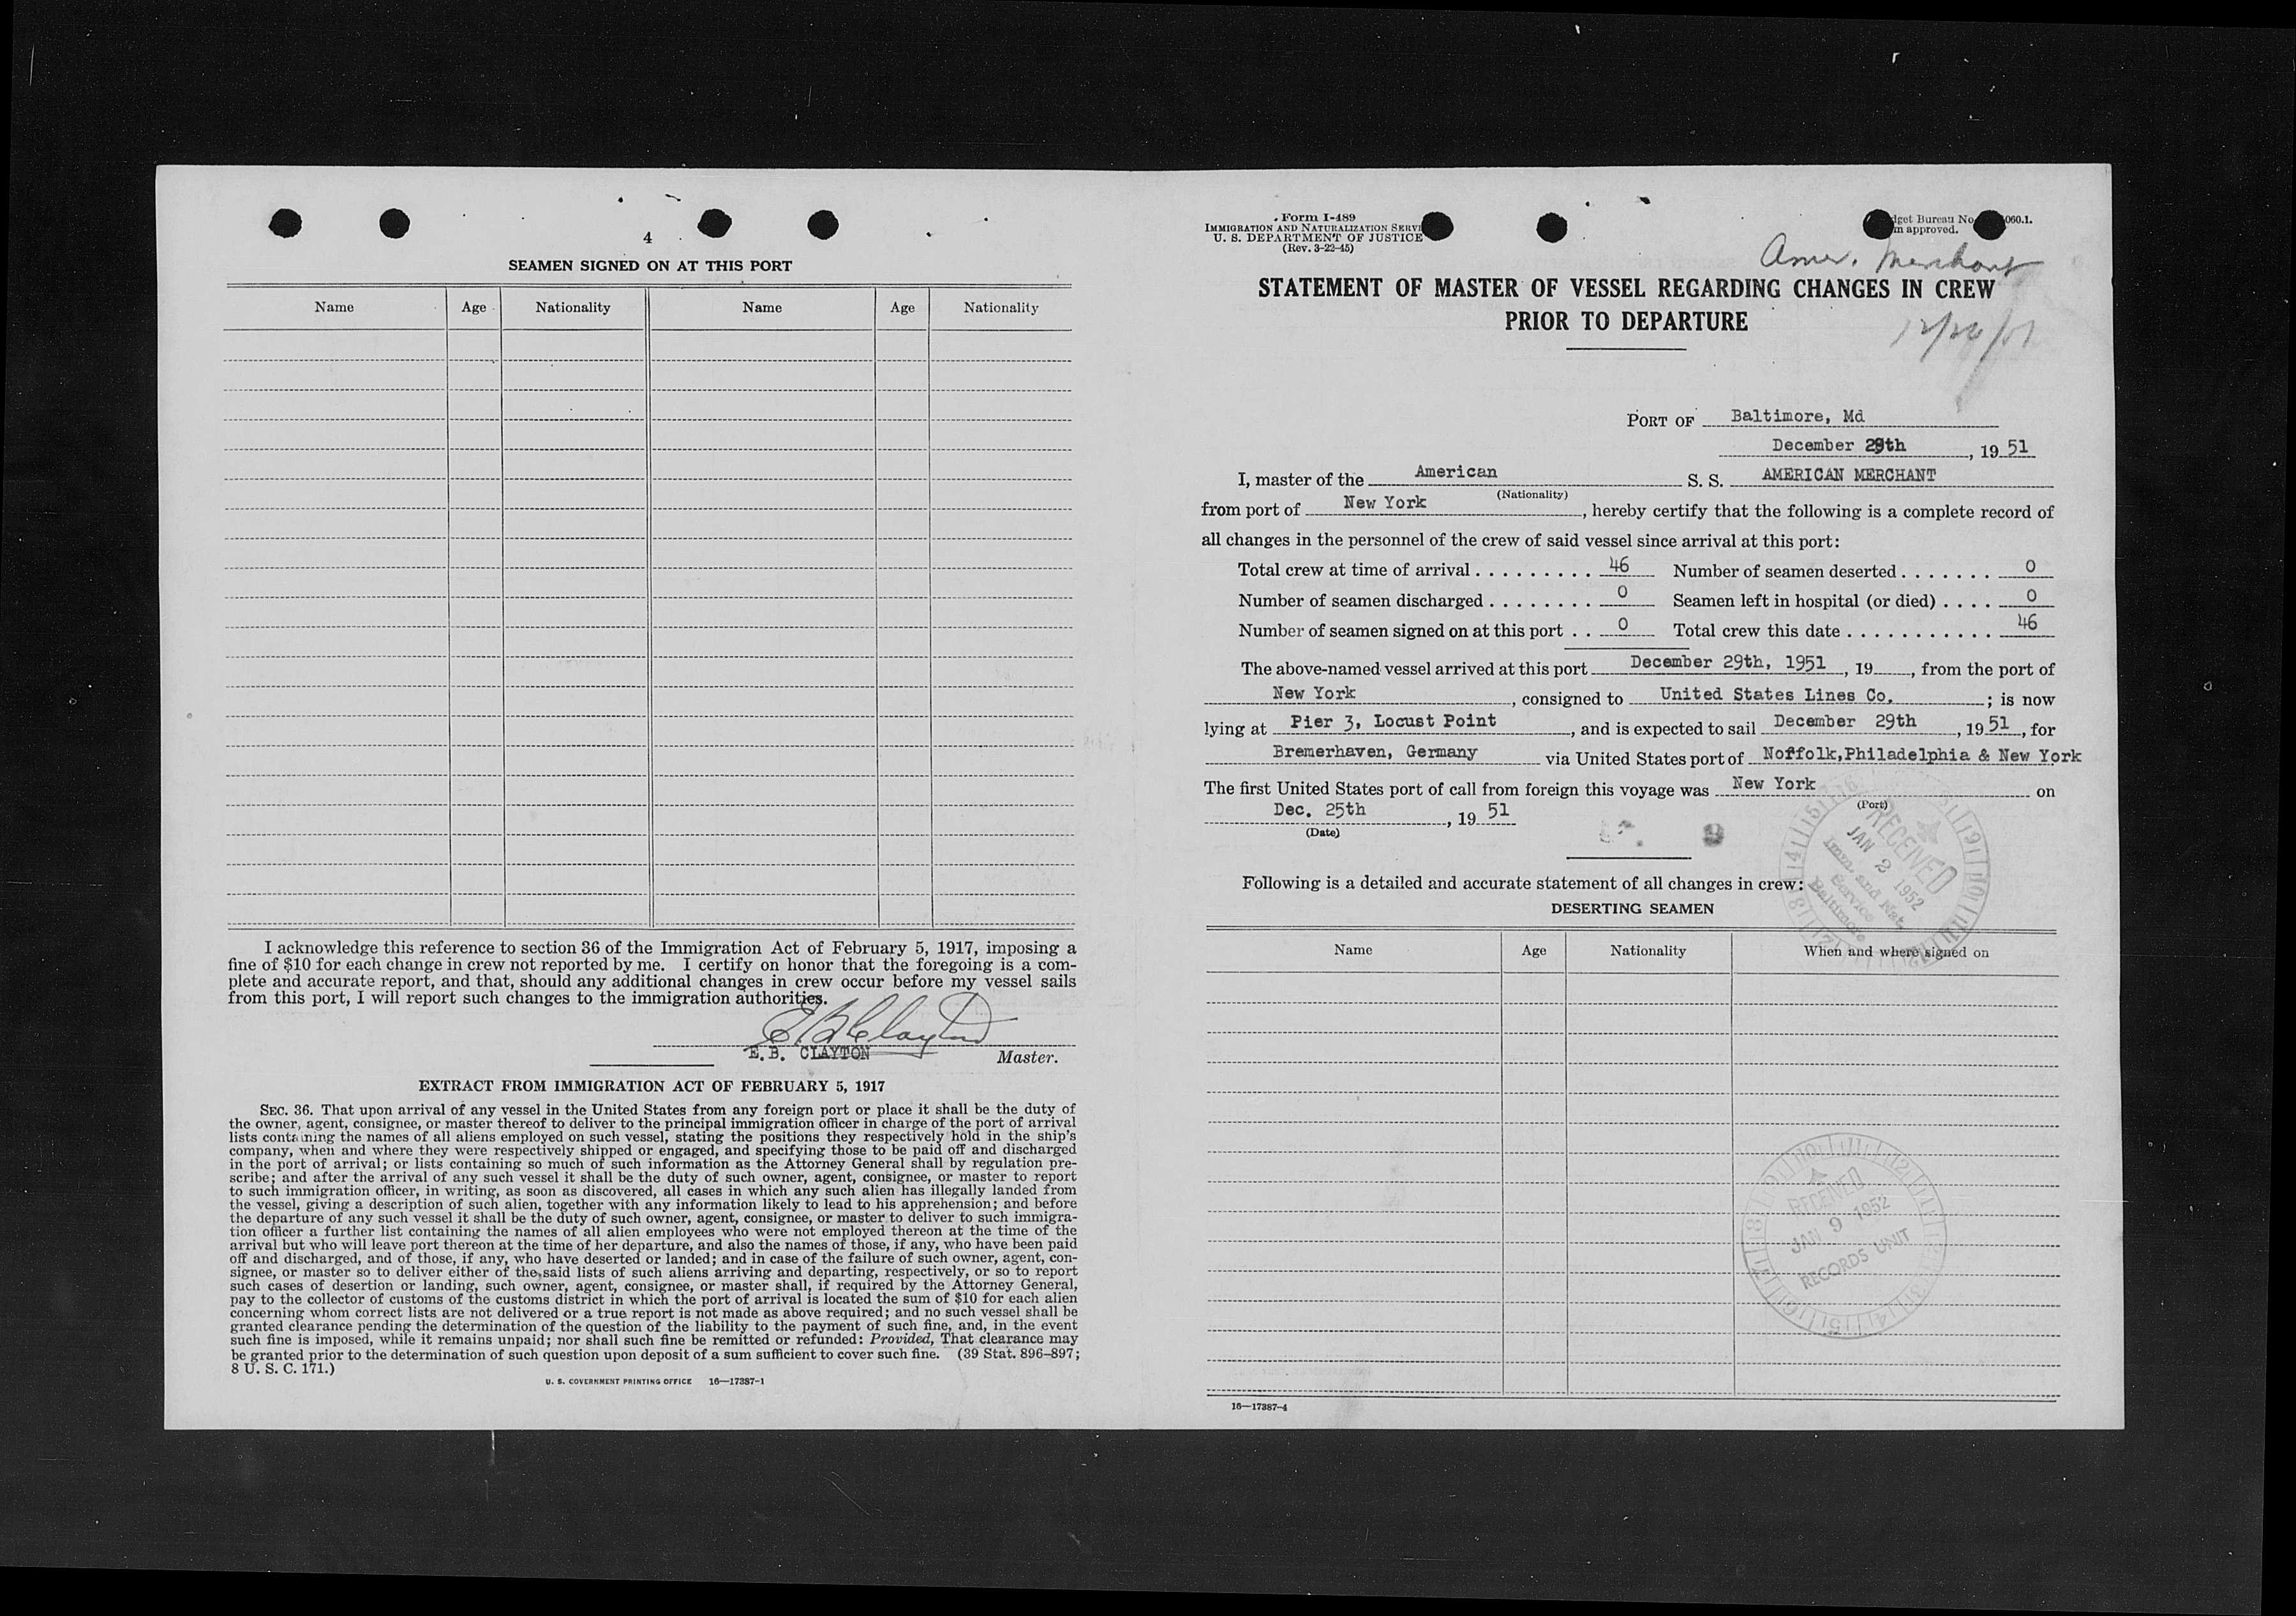 4
SEAMEN SIGNED ON AT THIS PORT
Name Age Nationality Name Age Nationality
I acknowledge this reference to section 36 of the Immigration Act of February 5, 1917, imposing a
fine of $10 for each change in crew not reported by me. I certify on honor that the foregoing is a com-
plete and accurate report, and that, should any additional changes in crew occur before my vessel sails
from this port, I will report such changes to the immigration authorities.
E B Clayton
E. B. CLAYTON Master.
EXTRACT FROM IMMIGRATION ACT OF FEBRUARY 5, 1917
SEC. 36. That upon arrival of any vessel in the United States from any foreign port or place it shall be the duty of
the owner, agent, consignee, or master thereof to deliver to the principal immigration officer in charge of the port of arrival
lists containing the names of all aliens employed on such vessel, stating the positions they respectively hold in the ship's
company, when and where they were respectively shipped or engaged, and specifying those to be paid off and discharged
in the port of arrival; or lists containing so much of such information as the Attorney General shall by regulation pre-
scribe; and after the arrival of any such vessel it shall be the duty of such owner, agent, consignee, or master to report
to such immigration officer, in writing, as soon as discovered, all cases in which any such alien has illegally landed from
the vessel, giving a description of such alien, together with any information likely to lead to his apprehension; and before
the departure of any such vessel it shall be the duty of such owner, agent, consignee, or master to deliver to such immigra-
tion officer a further list containing the names of all alien employees who were not employed thereon at the time of the
arrival but who will leave port thereon at the time of her departure, and also the names of those, if any, who have been paid
off and discharged, and of those, if any, who have deserted or landed; and in case of the failure of such owner, agent, con-
signee, or master so to deliver either of the said lists of such aliens arriving and departing, respectively, or so to report
such cases of desertion or landing, such owner, agent, consignee, or master shall, if required by the Attorney General,
pay to the collector of customs of the customs district in which the port of arrival is located the sum of $10 for each alien
concerning whom correct lists are not delivered or a true report is not made as above required; and no such vessel shall be
granted clearance pending the determination of the question of the liability to the payment of such fine, and, in the event
such fine is imposed, while it remains unpaid; nor shall such fine be remitted or refunded: Provided, That clearance may
be granted prior to the determination of such question upon deposit of a sum sufficient to cover such fine. (39 Stat. 896-897;
8 U. S. C. 171.)
U. S. GOVERNMENT PRINTING OFFICE 16—17387-1
Form I-489
IMMIGRATION AND NATURALIZATION SERVI
U. S. DEPARTMENT OF JUSTICE
(Rev. 3-22-45)
dget Bureau No. 060.1.
m approved.
Amer. Merchant
STATEMENT OF MASTER OF VESSEL REGARDING CHANGES IN CREW
PRIOR TO DEPARTURE
PORT OF Baltimore, Md
December 29th, 19 51
I, master of the American S. S. AMERICAN MERCHANT
(Nationality)
from port of New York, hereby certify that the following is a complete record of
all changes in the personnel of the crew of said vessel since arrival at this port:
Total crew at time of arrival . . . . . . . . . 46 Number of seamen deserted . . . . . . . 0
Number of seamen discharged . . . . . . . . 0 Seamen left in hospital (or died) . . . . 0
Number of seamen signed on at this port . . 0 Total crew this date . . . . . . . . . . . 46
The above-named vessel arrived at this port December 29th, 1951, 19, from the port of
New York, consigned to United States Lines Co. ; is now
lying at Pier 3, Locust Point, and is expected to sail December 29th, 19 51, for
Bremerhaven, Germany via United States port of Noffolk,Philadelphia & New York
The first United States port of call from foreign this voyage was New York on
(Port)
Dec. 25th, 19 51
(Date)
RECEIVED
JAN 2 1952
Imm. and Nat.
Service
Baltimore
Following is a detailed and accurate statement of all changes in crew:
DESERTING SEAMEN
Name Age Nationality When and where signed on
RECEIVED
JAN 9 1952
RECORDS UNIT
16—17387-4